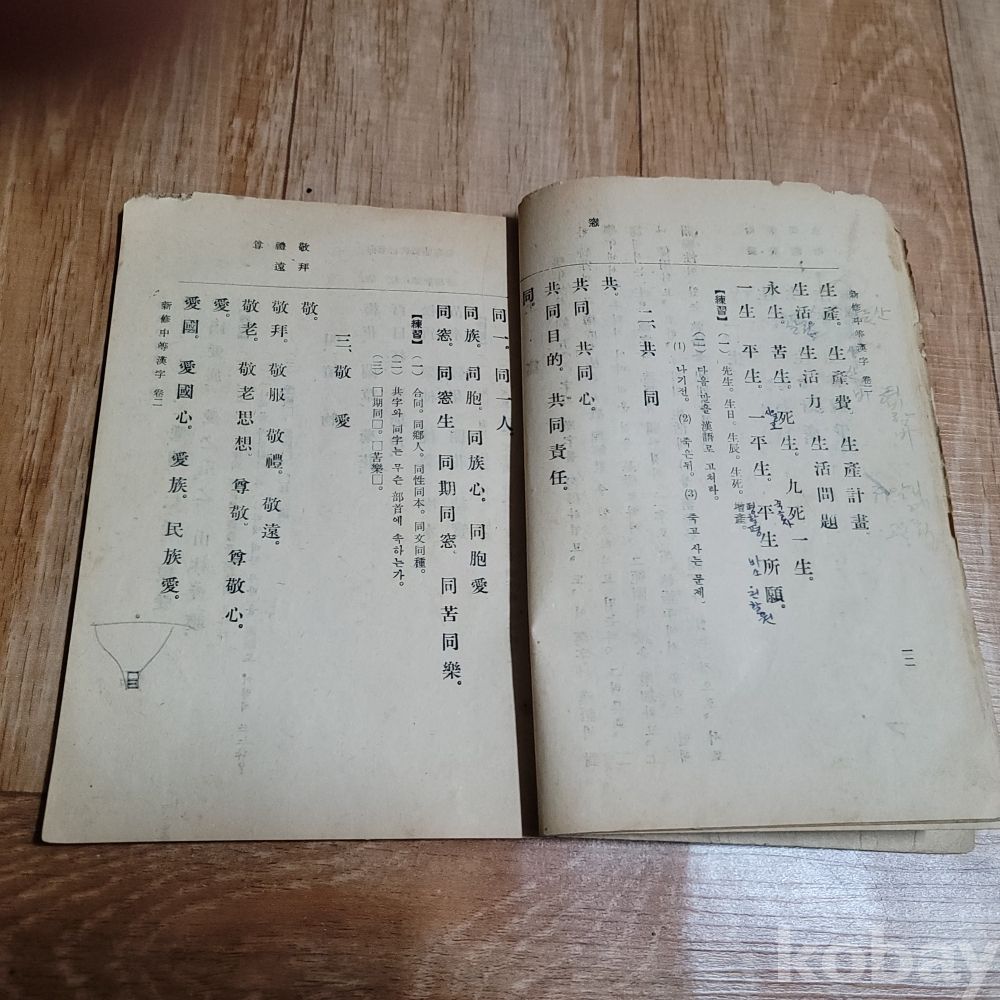 窓
新修中等漢字 卷一
生產。生產費 生產計畫
生活 生活力 生活問題
永生。苦生。死生。九死一生。
一生 平生。一平生。平生所願。
【練習】(一) 先生。生日。生辰。生死。增產。
(二) 다음 말을 漢語로 고처라。
(1) 나기전。(2) 죽은뒤。(3) 죽고 사는 문제。
二、共同
共。
共同 共同心。
共同目的。共同責任。
同。
一二
敬拜
禮遠
尊
同一。同一人。
同族。同胞。同族心。同胞愛
同窓。同窓生。同期同窓。同苦同樂。
【練習】(一) 合同。同鄕人。同性同本。同文同種。
(二) 共字와 同字는 무슨 部首에 속하는가。
(三) □期同□。□苦樂□。
三、敬愛
敬。
敬拜。敬服 敬禮。敬遠。
敬老。敬老思想。尊敬。尊敬心。
愛。
愛國。愛國心。愛族。民族愛。
新修中等漢字 卷一
kobay